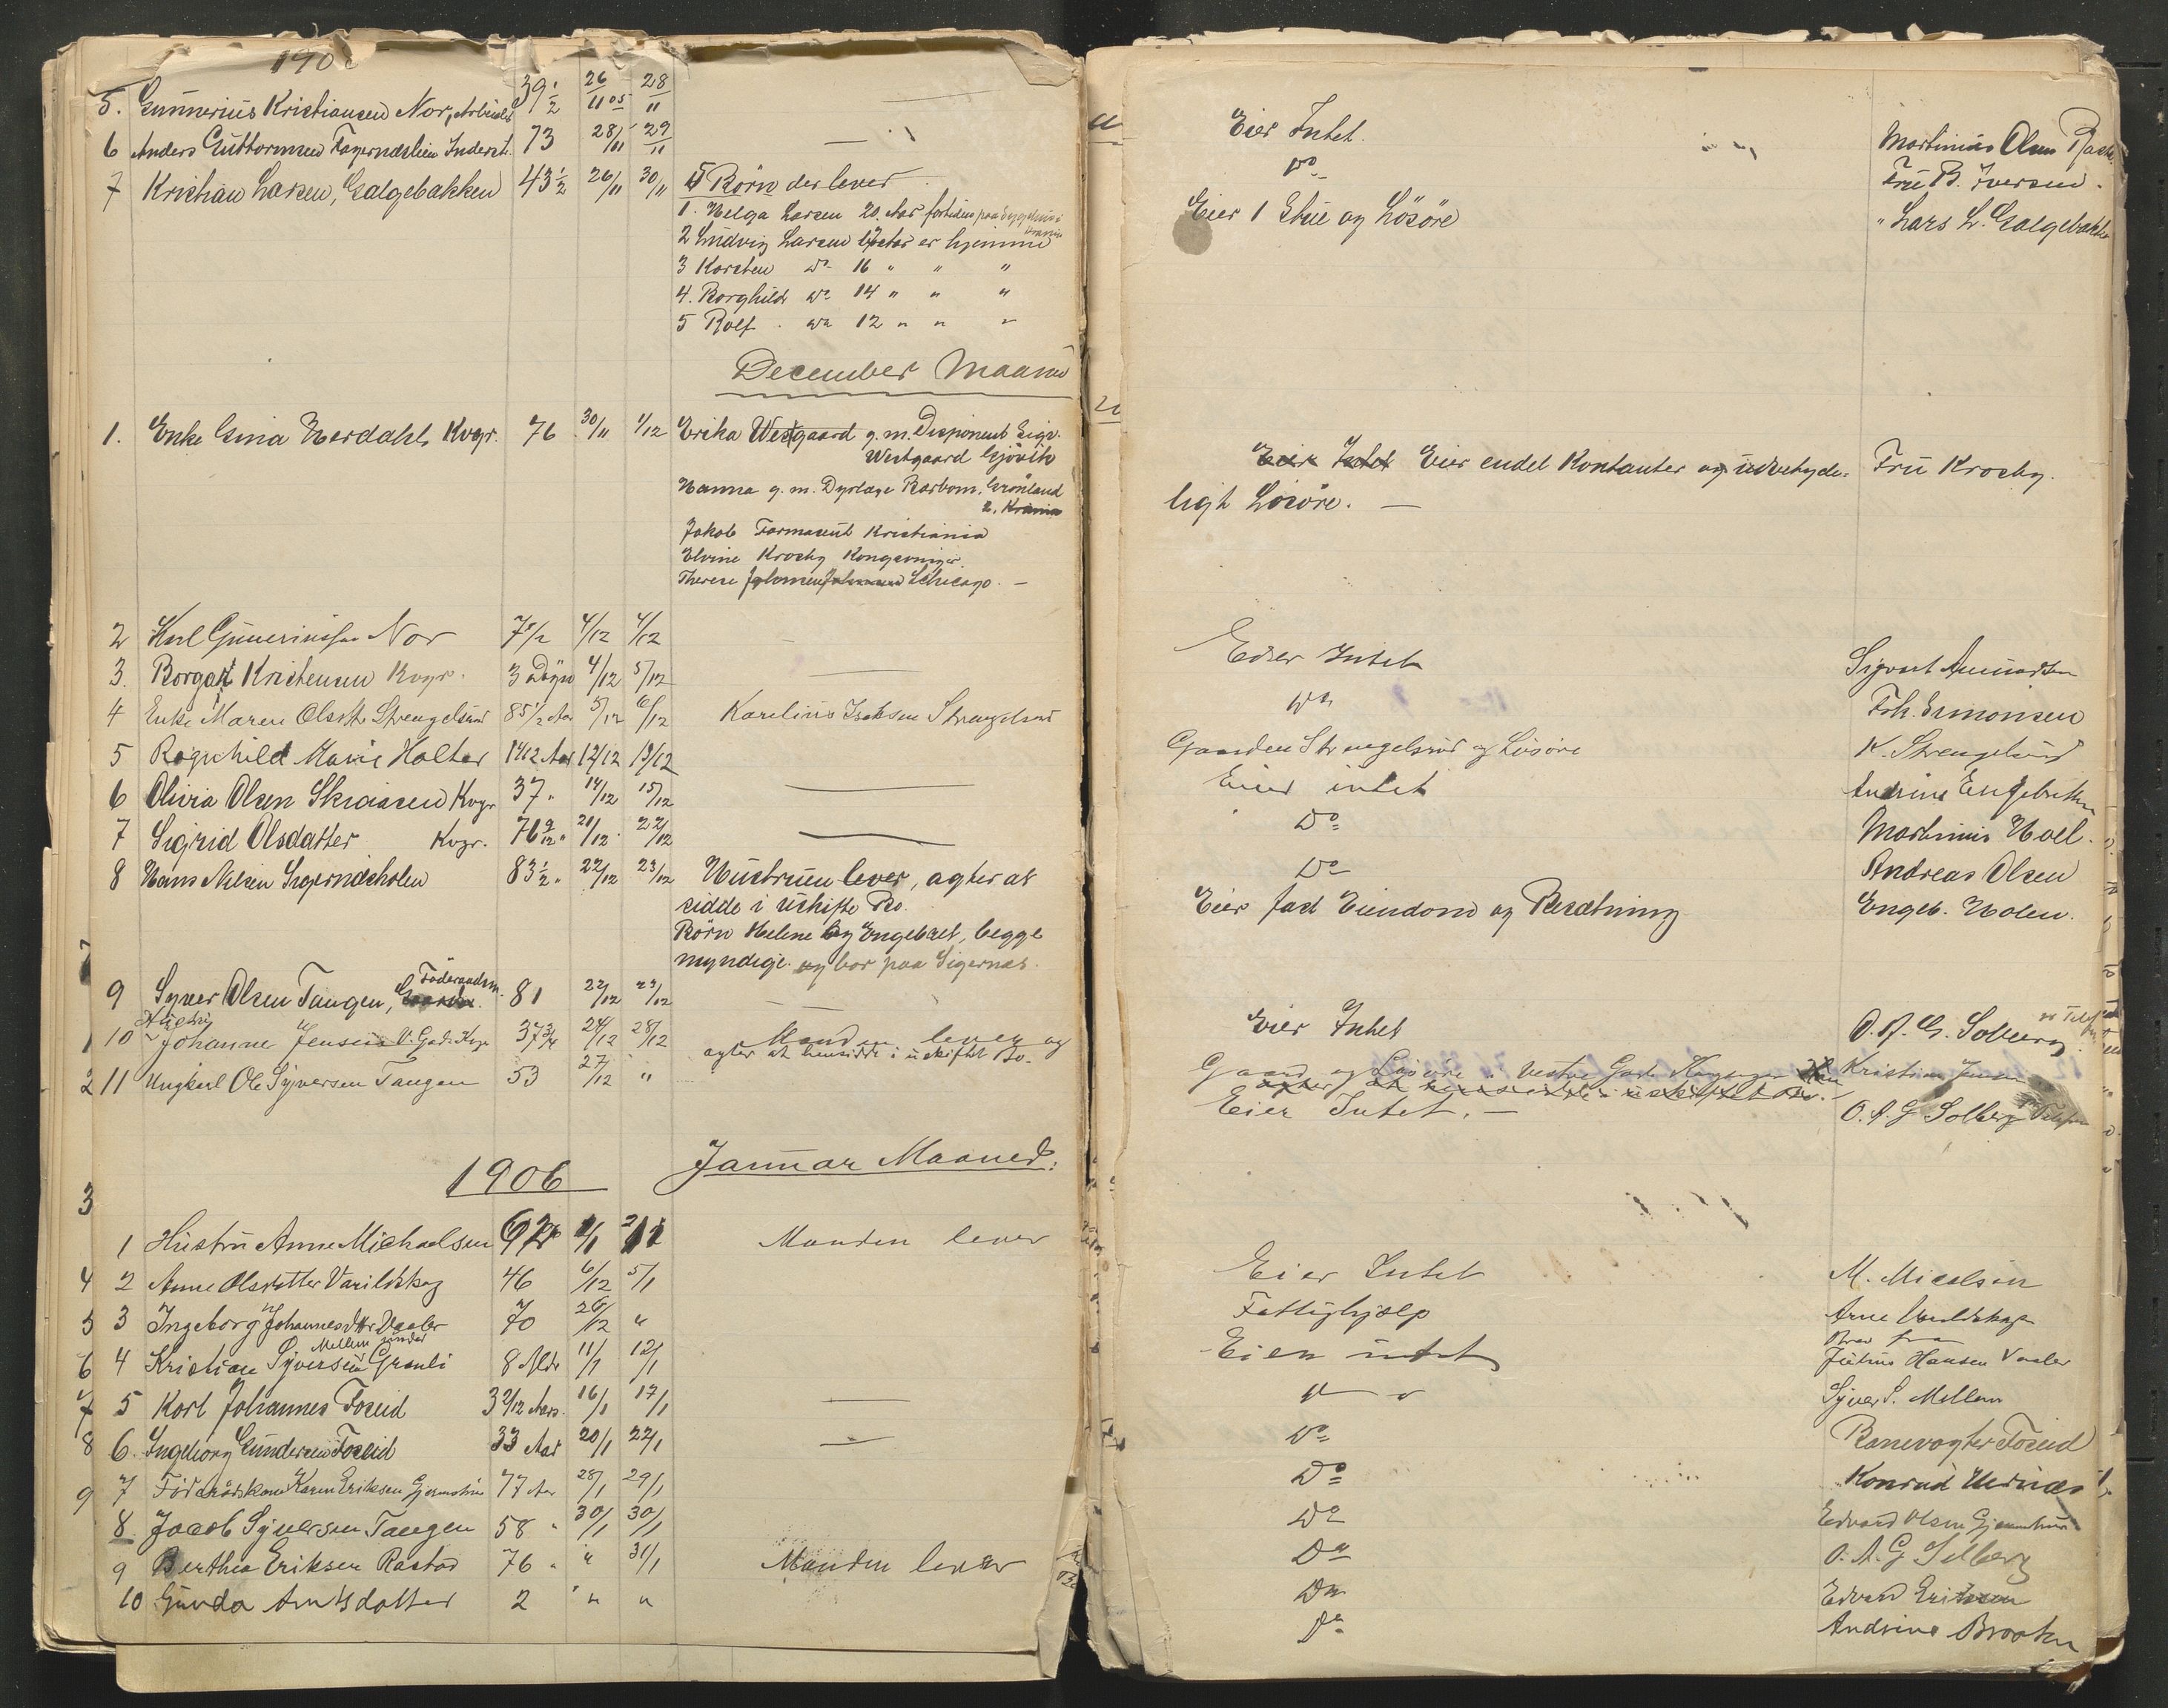 190
5. Gunnerius Kristiansen Nor, Arbeider 39 1/2 26/11 05 28/11 —
6 Anders Guttormsen Tagernæslien Inderst. 73 28/11 29/11 —
7 Kristian Larsen, Galgebakken 43 1/2 26/11 30/11 5 Börn der lever
1. Helga Larsen 20 Aar fortiden paa Sygehus
Krania
2 Ludvig Larsen 17 Aar er hjemme
3 Karsten do 16 " " "
4. Borghild do 14 " " "
5 Rolf do 12 " " "
December Maaned
1. Enke Gina Herdahl, Kvgr. 76 30/11 1/12 Erika Westgaard g. m. Disponent Sigv.
Westgaard Gjövik
Hanna g. m. Dyrlæge Barbom, Grönland
2, Krania
Jakob Farmaceut Kristiania
Elvine Krosby Kongsvinger
Therese Johnsen Chicago. —
2 Karl Gunneriussen Nor 7 1/2 4/12 4/12 —
3. Borgar Kristensen Kvgr. 3 Dögn 4/12 5/12 —
4 Enke Maren Olsdtr Strengelsrud 85 1/2 Aar 5/12 6/12 Karelius Iseksen Strengelsrud
5 Ragnhild Marie Holter 14/12 Aar 12/12 13/12
6 Olivia Olsen Skraasen Kvgr 37 " 14/12 15/12 —
7 Sigrid Olsdatter Kvgr. 76 9/12 " 21/12 22/12 —
8 Hans Nilsen Sigernæsholen 83 1/2 " 22/12 23/12 Hustruen lever, agter at
sidde i uskifte Bo.
Börn Helene og Engebret, begge
myndige og bor paa Sigernæs.
9 Syver Olsen Tangen, Föderaadsm. 81 22/12 23/12 —
Hustru
10 Johanne Jensen V. Gade Kvgr 37 3/4 24/12 28/12 Manden lever og
agter at hensidde i uskiftet Bo.
11 Ungkarl Ole Syversen Tangen 53 27/12 "
1906 Januar Maaned.
1 Hustru Anne Michaelsen 1/1 Manden lever
2 Anne Olsdatter Varildskog 46 6/12 5/1
3 Ingeborg Johannesdttr Vaaler 70 26/12 "
Mellem
4 Kristian Syversen Granli 8 Mdr 11/1 12/1
5 Karl Johannes Foseid 3 2/12 Aars 16/1 17/1 —
6. Ingeborg Gundersen Foseid 33 Aar 20/1 22/1 —
7 Föderådskone Karen Eriksen 77 Aar 28/1 29/1
8 Jacob Syversen Tangen 58 " 30/1 30/1
9 Berthea Eriksen Rastad 76 " " 31/1 Manden lever
10 Gunda Arntsdatter 2 " " "
Eier Intet. Martinius Olsen
Do Fru B. Iversen.
Eier 1 Stue og Lösöre " Lars L. Galgebakken
Eier Intet Eier endel Kontanter og udbetyde- Fru Krosby.
ligt Lösöre. —
Eier Intet Sigvart Amundsen
Do Frk. Simonsen
Gaarden Strengelsrud og Lösöre K. Strengelsrud
Eier intet Andrine Engebretsen
Do Martinius Hoel.
Do Andreas Olsen
Eier fast Eiendom og Besætning Engeb. Holen.
Eier Intet O. A. G. Solberg
Gaard og Lösöre i Vestre Gade Kongsvinger Kristian Jensen
agter at hensidde i uskiftet Bo.
Eier Intet. — O. A. G Solberg Telefon
Eier Intet M. Micalsen
Fattighjælp Arne Varildskog
Brev fra
Eier intet Julius Hansen Vaaler
Do Syver S. Mellem
Do Banevogter Foseid
Do Konrad Hernæs
Do Edvard Olsen
Do O. A. G Solberg
Do Edvard Eriksen
Do Andrine Braaten